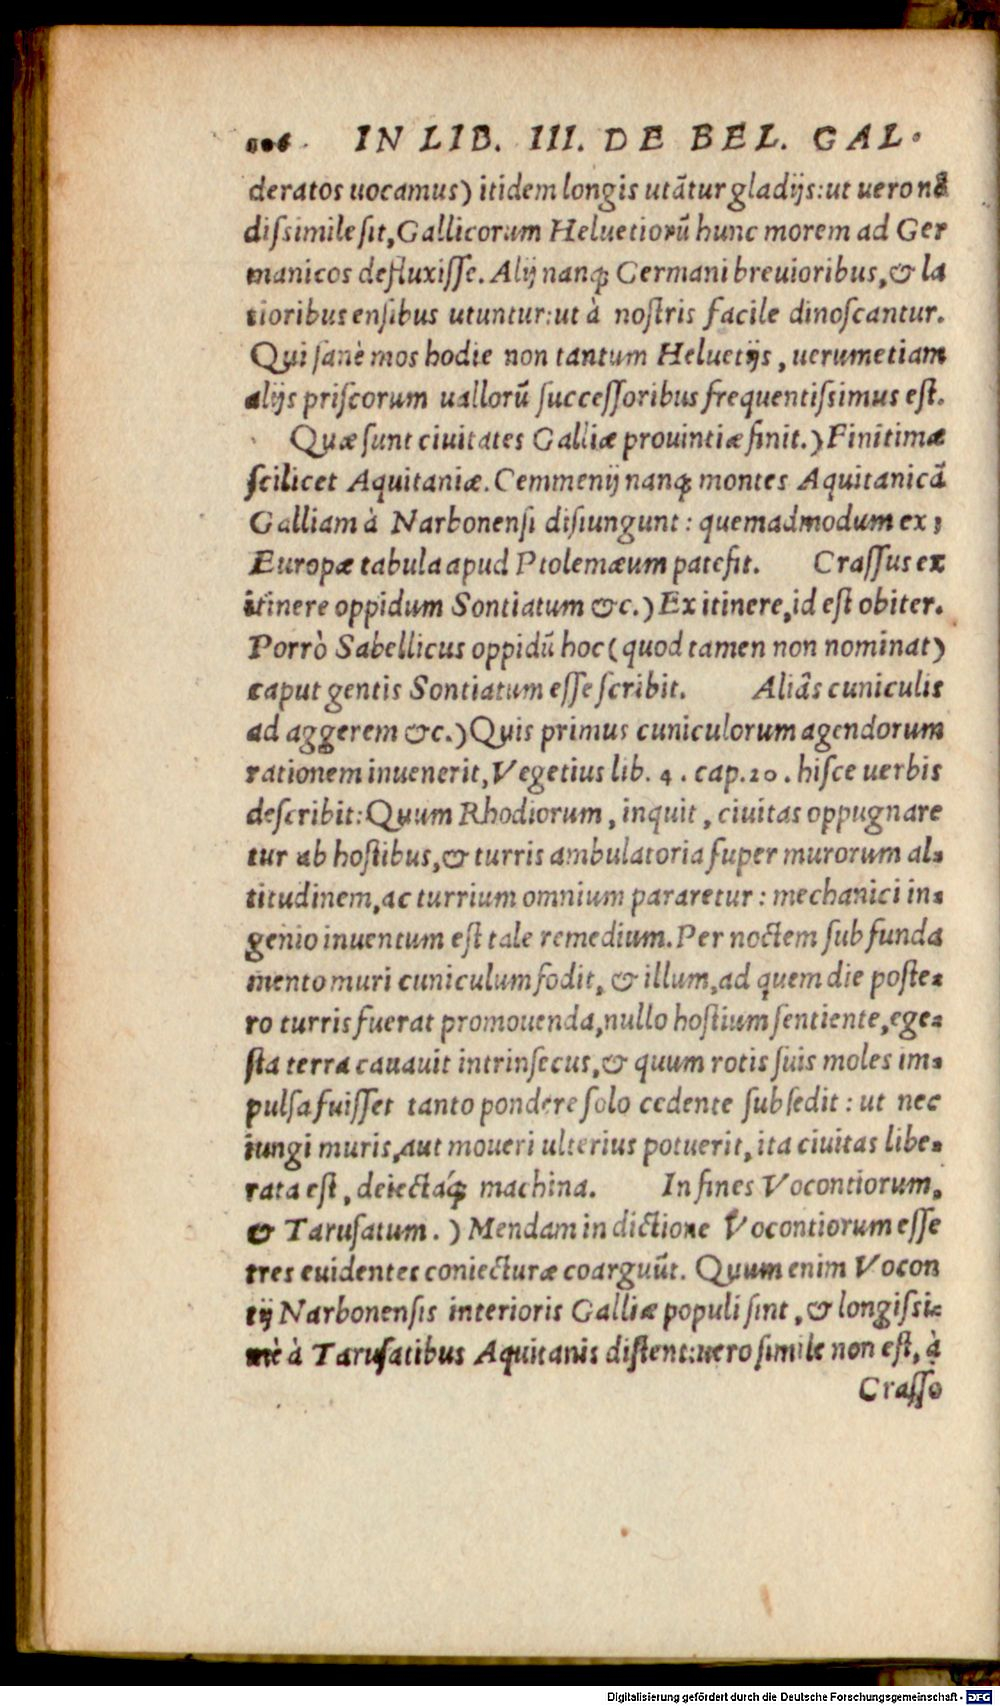 106 IN LIB. III. DE BEL. GAL.
deratos uocamus) itidem longis utãtur gladijs: ut uero nõ
diſsimile ſit, Gallicorum Heluetiorũ hunc morem ad Ger
manicos defluxiſſe. Alij nanq; Germani breuioribus, & la
tioribus enſibus utuntur: ut à noſtris facile dinoſcantur.
Qui ſanè mos hodie non tantum Heluetijs, uerumetiam
alijs priſcorum uallorũ ſucceſſoribus frequentiſsimus eſt.
Quæ ſunt ciuitates Galliæ prouintiæ finit.) Finitimæ
ſcilicet Aquitaniæ. Cemmenij nanq; montes Aquitanicã
Galliam à Narbonenſi diſiungunt: quemadmodum ex 3
Europæ tabula apud Ptolemæum patefit. Craſſus ex
itinere oppidum Sontiatum &c.) Ex itinere, id eſt obiter.
Porrò Sabellicus oppidũ hoc (quod tamen non nominat)
caput gentis Sontiatum eſſe ſcribit. Aliâs cuniculis
ad aggerem &c.) Quis primus cuniculorum agendorum
rationem inuenerit, Vegetius lib. 4. cap. 20. hiſce uerbis
deſcribit: Quum Rhodiorum, inquit, ciuitas oppugnare
tur ab hoſtibus, & turris ambulatoria ſuper murorum al-
titudinem, ac turrium omnium pararetur: mechanici in-
genio inuentum eſt tale remedium. Per noctem ſub funda
mento muri cuniculum fodit, & illum, ad quem die poſte-
ro turris fuerat promouenda, nullo hoſtium ſentiente, ege-
ſta terra cauauit intrinſecus, & quum rotis ſuis moles im-
pulſa fuiſſet tanto pondere ſolo cedente ſubſedit: ut nec
iungi muris, aut moueri ulterius potuerit, ita ciuitas libe-
rata eſt, deiectáq; machina. In fines Vocontiorum,
& Taruſatum.) Mendam in dictione Vocontiorum eſſe
tres euidentes coniecturæ coarguũt. Quum enim Vocon
tij Narbonenſis interioris Galliæ populi ſint, & longiſsi-
mè à Taruſatibus Aquitanis diſtent: uero ſimile non eſt, à
Craſſo
Digitalisierung gefördert durch die Deutsche Forschungsgemeinschaft - DFG